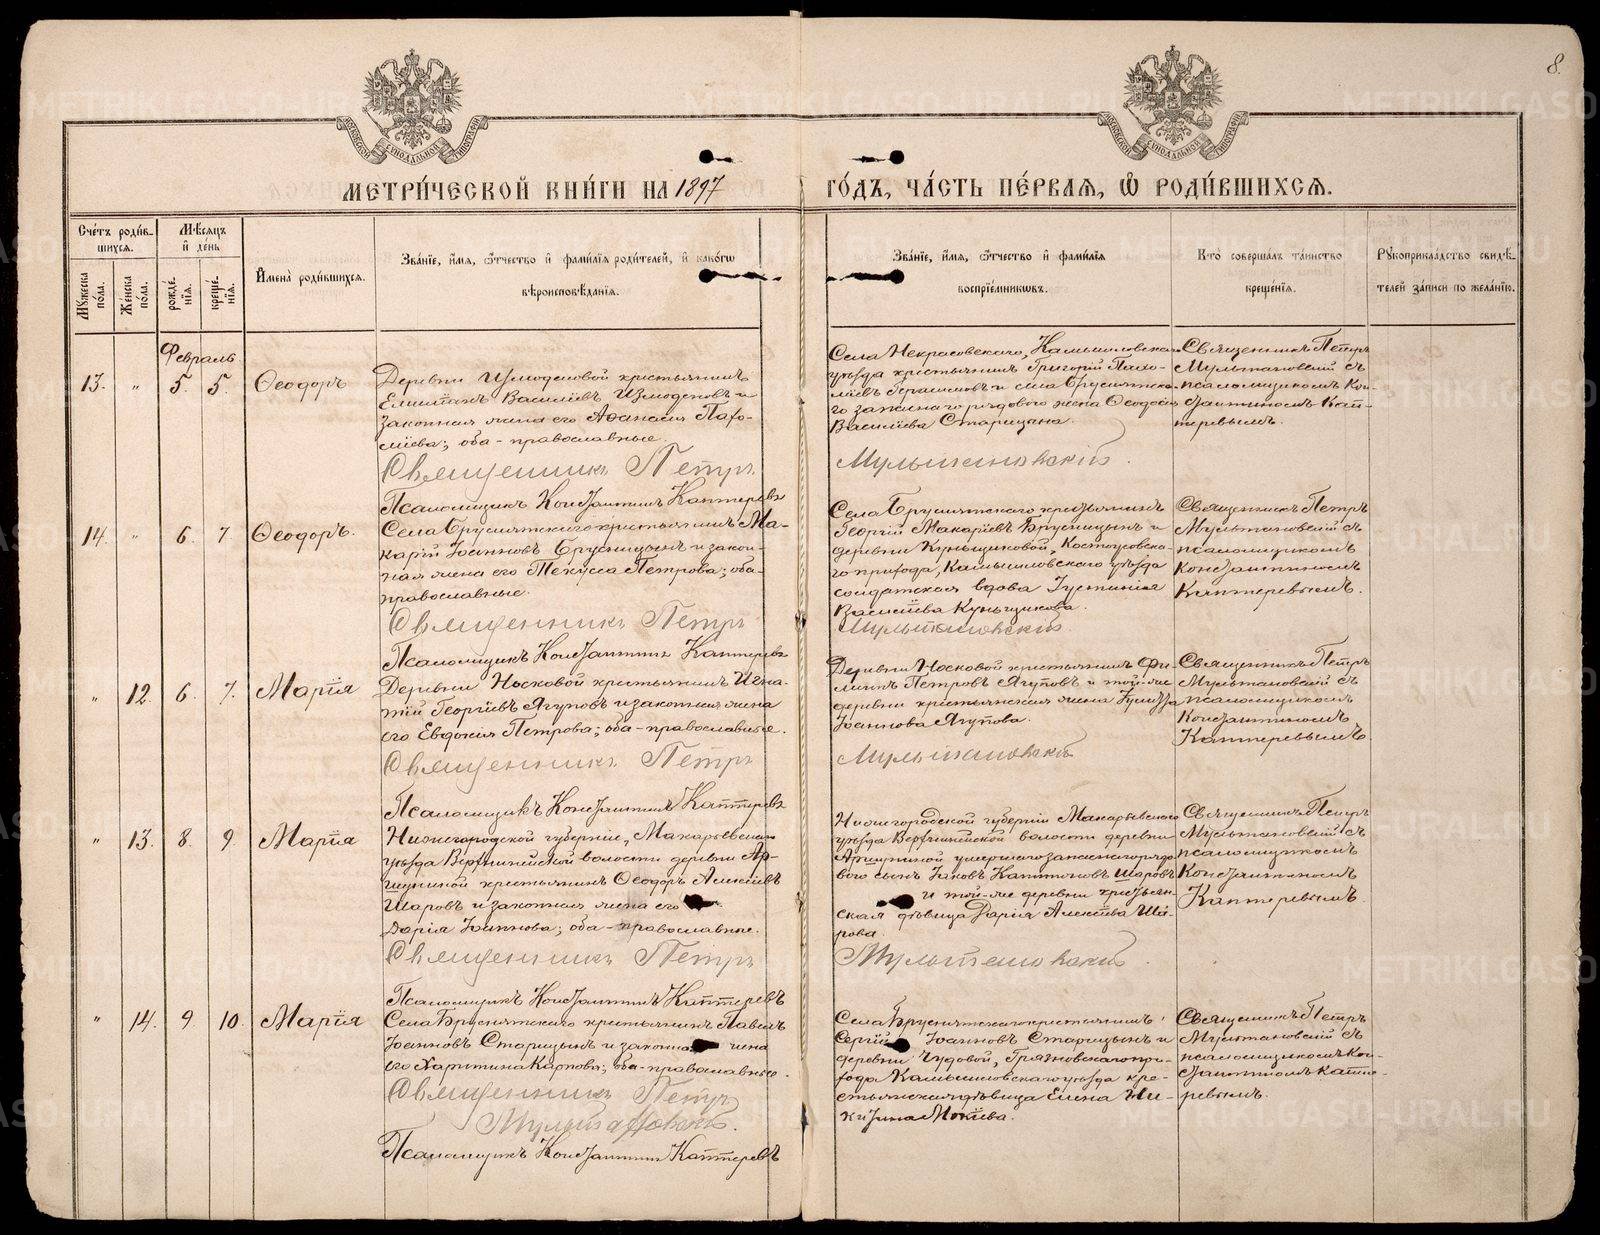 8.
МОСКОВСКОЙ СѴНОДАЛЬНОЙ ТИПОГРАФІИ
МОСКОВСКОЙ СѴНОДАЛЬНОЙ ТИПОГРАФІИ
МЕТРИ́ЧЕСКОЙ КНИ́ГИ НА 1897 ГО́ДЪ, ЧА́СТЬ ПЕ́РВАЯ, Ѿ РОДИ́ВШИХСЯ.
Счетъ роди́в-
шихся.
Мꙋжеска по́ла.
Же́нска по́ла.
Мѣсяцъ
и де́нь
рожде́-
нїя.
креще́-
нїя.
Имена̀ роди́вшихся.
Зва́нїе, и́мя, о́тчество и фами́лїя роди́телей, и како́гѡ
вѣроисповѣ́данїя.
Зва́нїе, и́мя, о́тчество и фами́лїя
воспрїе́мникѡвъ.
Кто̀ соверша́лъ та́инство
креще́нїя.
Рꙋкоприкла́дство свидѣ́-
телей за́писи по жела́нїю.
Февраль
13. „ 5. 5. Ѳеодоръ
Деревни Измоденовой крестьянинъ
Василіевъ Измоденовъ и
законная жена его Аѳанасія Пафо-
міева; оба - православные.
Священникъ Петръ
Псаломщикъ Константинъ Каптеревъ
Села Некрасовскаго, Камышловскаго
уѣзда крестьянинъ Григорій
Герасимовъ и села Бруснятска-
го запаснаго рядового жена Ѳеодосія
Василіева Старицына.
Мультановскій.
Священникъ Петръ
Мультановскій съ
псаломщикомъ Кон-
стантиномъ Кап-
теревымъ.
14. „ 6. 7. Ѳеодоръ.
Села Бруснятскаго крестьянинъ Ма-
карій Іоанновъ Брусницынъ и закон-
ная жена его Текусса Петрова; оба-
православные.
Священникъ Петръ
Псаломщикъ Константинъ Каптеревъ
Села Бруснятскаго крестьянинъ
Георгій Макаріевъ Брусницынъ и
деревни Куньщиковой, Костоусовска-
го прихода, Камышловскаго уѣзда
солдатская вдова Іустинія
Василіева Куньщикова.
Мультановскій.
Священникъ Петръ
Мультановскій съ
псаломщикомъ
Константиномъ
Каптеревымъ.
„ 12. 6. 7. Марія
Деревни Носковой крестьянинъ Игна-
тій Георгіевъ Ягуповъ и законная жена
его Евдокія Петрова; оба - православные.
Священникъ Петръ
Псаломщикъ Константинъ Каптеревъ
Деревни Носковой крестьянинъ Фи-
липпъ Петровъ Ягуповъ и той-же
деревни крестьянская жена
Іоаннова Ягупова.
Мультановскій
Священникъ Петръ
Мультановскій съ
псаломщикомъ
Константиномъ
Каптеревымъ.
„ 13. 8. 9. Марія
Нижегородской губерніи, Макарьевскаго
уѣзда волости деревни Ар-
шутиной крестьянинъ Ѳеодоръ Алексіевъ
Шаровъ и законная жена его
Дарія Іоаннова; оба - православные.
Священникъ Петръ
Псаломщикъ Константинъ Каптеревъ
Нижегородской губерніи Макарьевскаго
уѣзда волости деревни
Аршутиной умершаго запаснаго рядо-
вого сынъ Іаковъ Шаровъ
и той-же деревни крестьян-
ская дѣвица Дарія Алексіева Ша-
рова.
Мультановскій.
Священникъ Петръ
Мультановскій съ
псаломщикомъ
Константиномъ
Каптеревымъ.
„ 14. 9. 10. Марія
Села Бруснятскаго крестьянинъ Павелъ
Іоанновъ Старицынъ и законная жена
его Харитина Карпова; оба - православные.
Священникъ Петръ
Мультановскій.
Псаломщикъ Константинъ Каптеревъ
Села Бруснятскаго крестьянинъ
Сергій Іоанновъ Старицынъ и
деревни Чудовой, Грязновскаго при-
хода Камышловскаго уѣзда кре-
стьянская дѣвица Елена Ни-
Мокіева.
Священникъ Петръ
Мультановскій съ
псаломщикомъ Кон-
стантиномъ Капте-
ревымъ.
METRIKI.GASO-URAL.RU